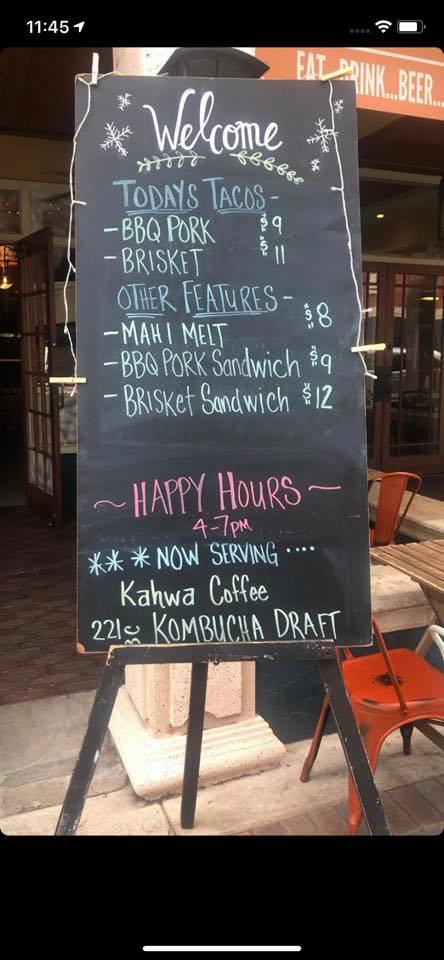 11:45
EAT...DRINK...BEER...
Welcome
TODAYS TACOS-
-BBQ PORK $9
-BRISKET $11
OTHER FEATURES-
-MAHI MELT $8
-BBQ PORK Sandwich $9
-BRISKET Sandwich $12
~HAPPY HOURS~
4-7PM
*** NOW SERVING ....
Kahwa Coffee
221 BC KOMBUCHA DRAFT